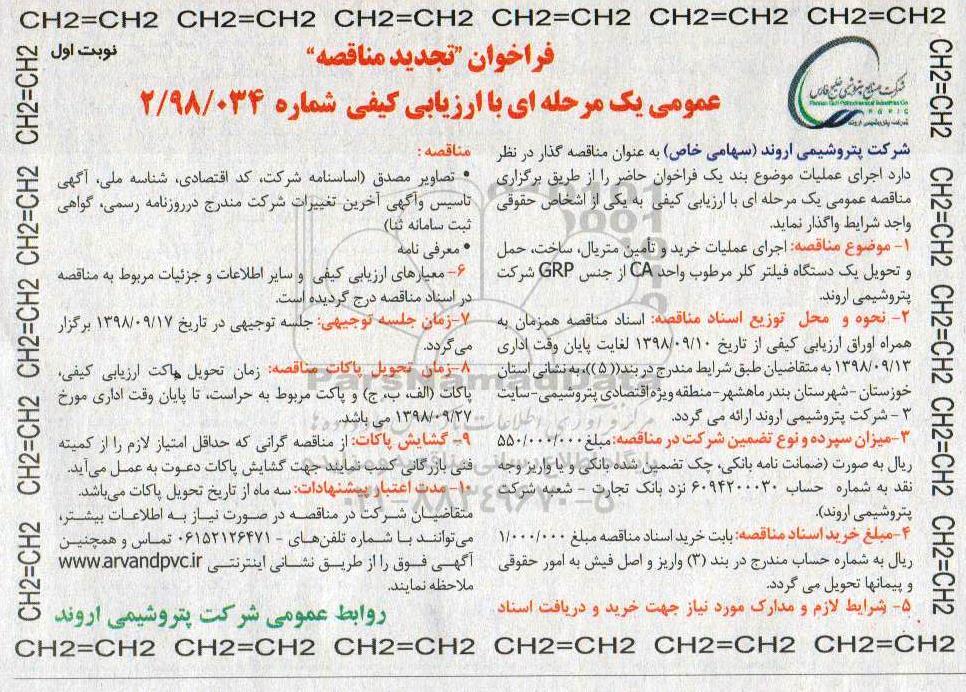 CH2=CH2 CH2=CH2 CH2=CH2 CH2=CH2 CH2=CH2 CH2=CH2
نوبت اول
فراخوان "تجدید مناقصه"
عمومی یک مرحله ای با ارزیابی کیفی شماره ۲/۹۸/۰۳۴
شرکت صنایع پتروشیمی خلیج فارس
Persian Gulf Petrochemical Industries Co
P G P I C
شرکت پتروشیمی اروند
شرکت پتروشیمی اروند (سهامی خاص) به عنوان مناقصه گذار در نظر
دارد اجرای عملیات موضوع بند یک فراخوان حاضر را از طریق برگزاری
مناقصه عمومی یک مرحله ای با ارزیابی کیفی به یکی از اشخاص حقوقی
واجد شرایط واگذار نماید.
۱- موضوع مناقصه: اجرای عملیات خرید و تأمین متریال، ساخت، حمل
و تحویل یک دستگاه فیلتر کلر مرطوب واحد CA از جنس GRP شرکت
پتروشیمی اروند.
۲- نحوه و محل توزیع اسناد مناقصه: اسناد مناقصه همزمان به
همراه اوراق ارزیابی کیفی از تاریخ ۱۳۹۸/۰۹/۱۰ لغایت پایان وقت اداری
۱۳۹۸/۰۹/۱۳ به متقاضیان طبق شرایط مندرج در بند((۵))، به نشانی استان
خوزستان -شهرستان بندر ماهشهر- منطقه ویژه اقتصادی پتروشیمی- سایت
۳ - شرکت پتروشیمی اروند ارائه می گردد.
۳-میزان سپرده و نوع تضمین شرکت در مناقصه: مبلغ ۵۵۰/۰۰۰/۰۰۰
ریال به صورت (ضمانت نامه بانکی، چک تضمین شده بانکی و یا واریز وجه
نقد به شماره حساب ۶۰۹۴۲۰۰۰۳۰ نزد بانک تجارت - شعبه شرکت
پتروشیمی اروند).
۴-مبلغ خرید اسناد مناقصه: بابت خرید اسناد مناقصه مبلغ ۱/۰۰۰/۰۰۰
ریال به شماره حساب مندرج در بند (۳) واریز و اصل فیش به امور حقوقی
و پیمانها تحویل می گردد.
۵- شرایط لازم و مدارک مورد نیاز جهت خرید و دریافت اسناد
مناقصه :
• تصاویر مصدق (اساسنامه شرکت، کد اقتصادی، شناسه ملی، آگهی
تاسیس وآگهی آخرین تغییرات شرکت مندرج درروزنامه رسمی، گواهی
ثبت سامانه ثنا)
• معرفی نامه
۶- معیارهای ارزیابی کیفی و سایر اطلاعات و جزئیات مربوط به مناقصه
در اسناد مناقصه درج گردیده است.
۷-زمان جلسه توجیهی: جلسه توجیهی در تاریخ ۱۳۹۸/۰۹/۱۷ برگزار
می گردد.
۸-زمان تحویل پاکات مناقصه: زمان تحویل پاکت ارزیابی کیفی،
پاکات (الف، ب، ج) و پاکت مربوط به حراست، تا پایان وقت اداری مورخ
۱۳۹۸/۰۹/۲۷ می باشد.
۹- گشایش پاکات: از مناقصه گرانی که حداقل امتیاز لازم را از کمیته
فنی بازرگانی کسب نمایند جهت گشایش پاکات دعوت به عمل می‌آید.
۱۰- مدت اعتبار پیشنهادات: سه ماه از تاریخ تحویل پاکات می‌باشد.
متقاضیان شرکت در مناقصه در صورت نیاز به اطلاعات بیشتر،
می‌توانند با شماره تلفن‌های ۰۶۱۵۲۱۲۶۴۷۱ تماس و همچنین
آگهی فوق را از طریق نشانی اینترنتی www.arvandpvc.ir
ملاحظه نمایند.
روابط عمومی شرکت پتروشیمی اروند
CH2=CH2 CH2=CH2 CH2=CH2 CH2=CH2 CH2=CH2
CH2=CH2 CH2=CH2 CH2=CH2 CH2=CH2 CH2=CH2
CH2=CH2 CH2=CH2 CH2=CH2 CH2=CH2 CH2=CH2 CH2=CH2
ParsNamadData
۰۲۱-۸۸۳۴۹۶۷۰-۵